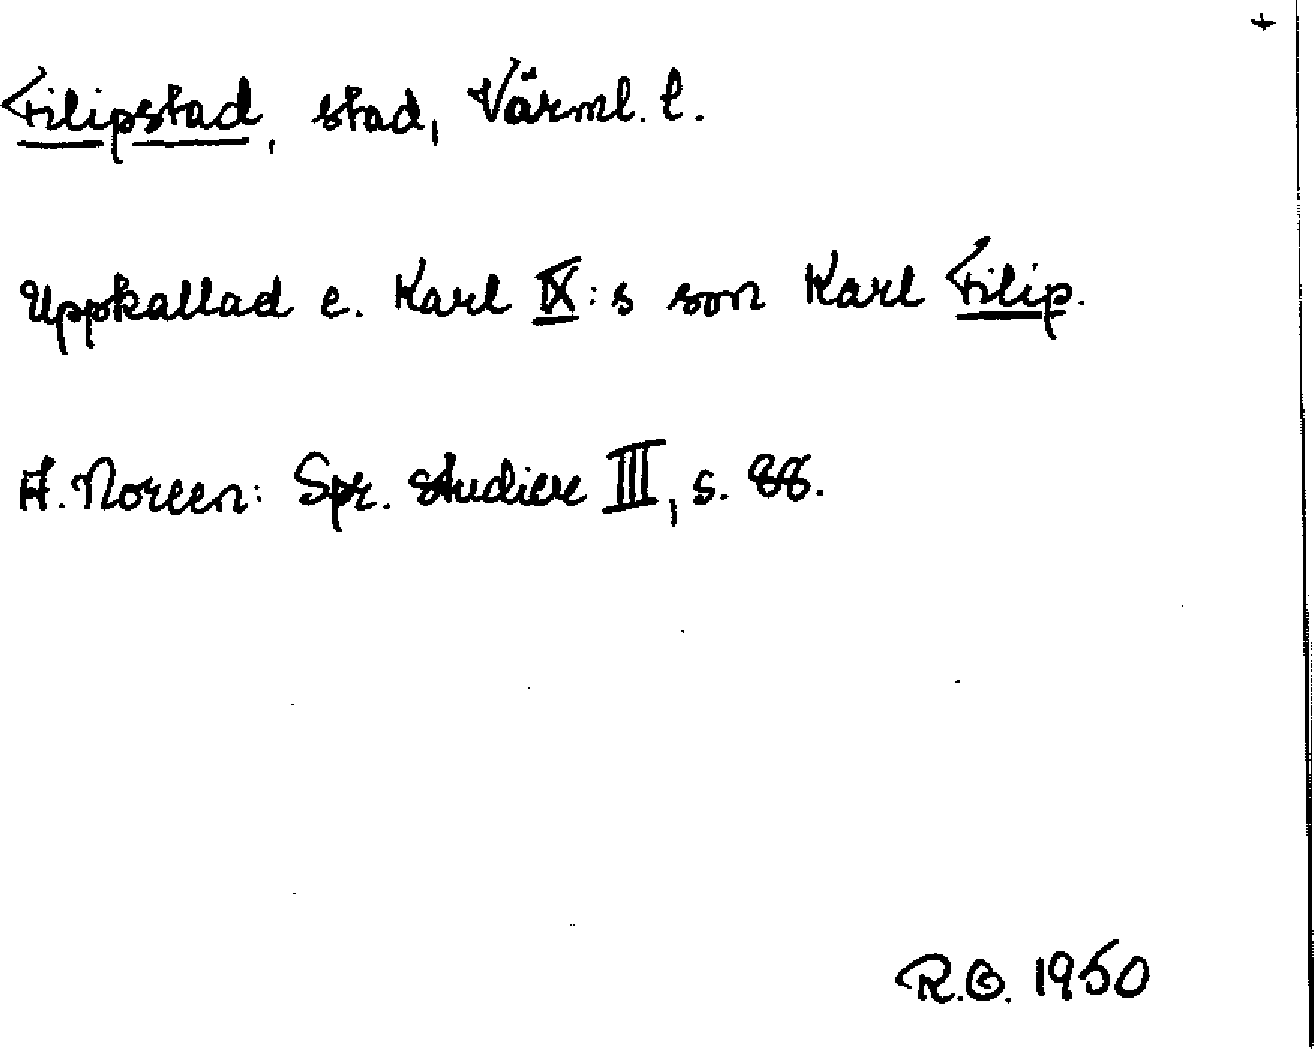 +
Filipstad, stad, Värml. l.
Uppkallad e. Karl IX:s son Karl Filip.
A. Noreen: Spr. studier III, s. 88.
R.O. 1950